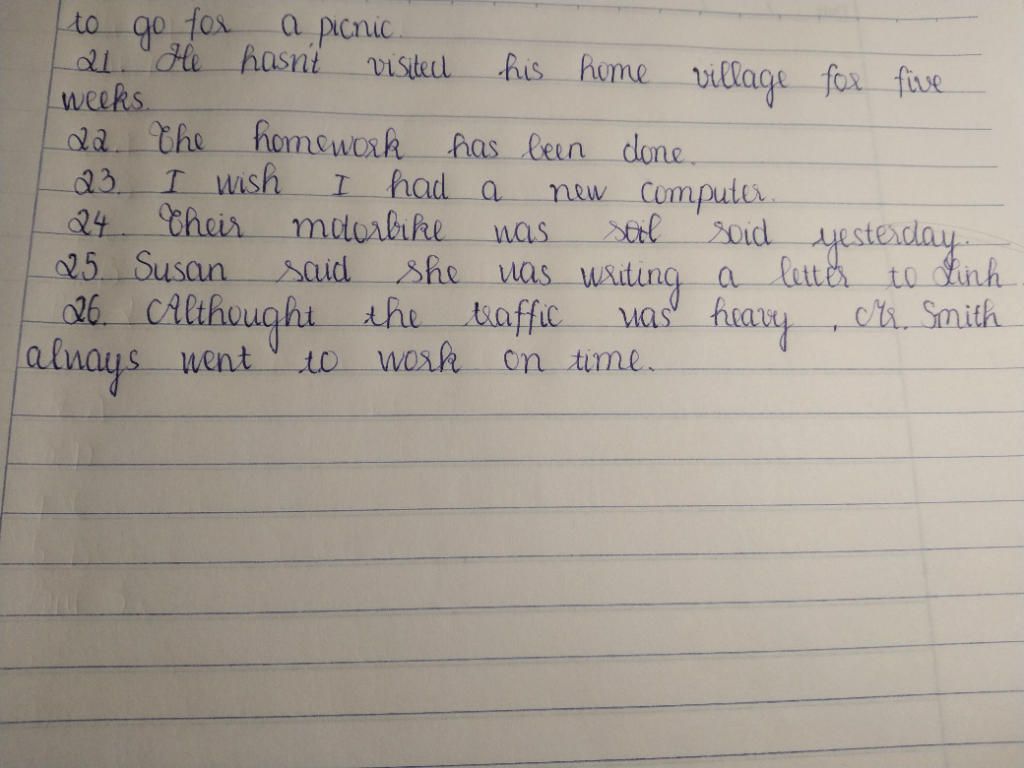 to go for a picnic
21. He hasn't visited his home village for five
weeks.
22. The homework has been done.
23. I wish I had a new computer.
24. Their motorbike was soid yesterday.
25. Susan said she was writing a letter to Linh.
26. Althought the traffic was heavy, Mr. Smith
always went to work on time.